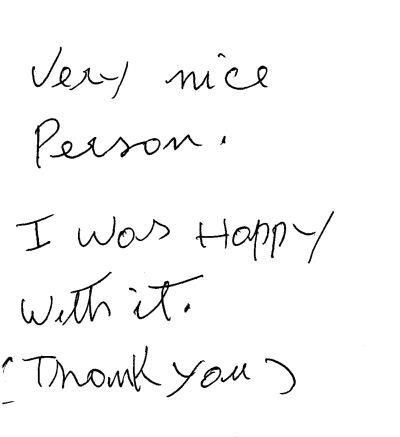 Very nice
Person.
I was Happy
with it.
(Thank you)